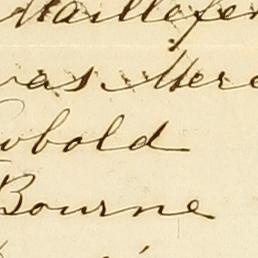 Maillefer
was Mere
wbold
Bourne